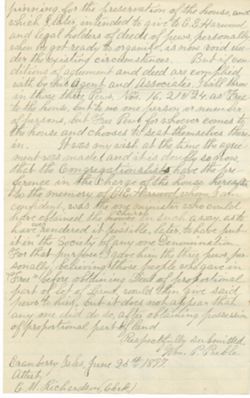 ginning for the preservation of the house, and
which I also, intended to give to E. S. Harmon
and legal holders of deeds of pews personally
when it got ready to organize, is now void un-
der the existing circumstances. But if con-
ditions of agreement and deed are complied
with by this Agent and Associates, I will throw
in those three pews, Nos. 16, 21 & 24, as Free
to the house, but to no one person or number
of persons, but Free Rent for whoever comes to
the house and chooses to seat themselves there-
in. It was my wish at the time the agree-
ment was made (and it is doubly so now)
that the Congregationalists have the pre-
ference in the charge of the house
to the memory of who I am
confident, was the one minister who would
have obtained the church in such a way, as to
have rendered it possible, later, to have put
upon the Society of any one Denomination.
For that purpose I gave him the three pews per-
sonally, believing those people who gave as
"Free" before obtaining Deed of proportional
part of lot of Land would then give said
pews to him, but it does not appear that
any one did do so, after obtaining possession
of proportional part of land.
Respectfully submitted,
Wm. P. Preble.
Cranberry Isles, June 26th 1897.
Attest,
C. M. Richardson, Clerk